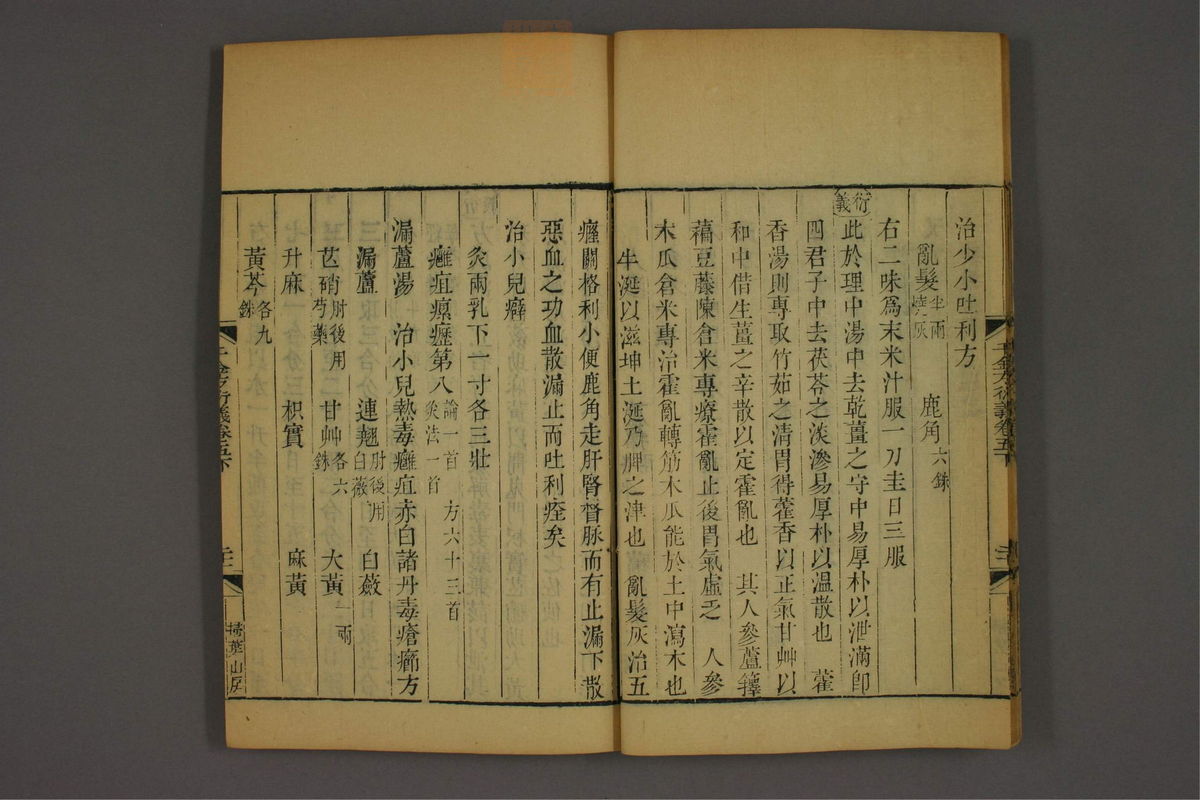 治少小吐利方
亂髮半兩燒灰　鹿角六銖
右二味爲末米汁服一刀圭日三服
衍義
此於理中湯中去乾薑之守中易厚朴以泄滿卽
四君子中去茯苓之淡滲易厚朴以溫散也　藿
香湯則專取竹茹之清胃得藿香以正氣甘艸以
和中借生薑之辛散以定霍亂也　其人參蘆籜
藊豆藤陳倉米專療霍亂止後胃氣虛乏　人參
木瓜倉米專治霍亂轉筋木瓜能於土中瀉木也
牛涎以滋坤土涎乃脾之津也　亂髮灰治五
癃關格利小便鹿角走肝腎督脉而有止漏下散
惡血之功血散漏止而吐利痊矣
治小兒癖
灸兩乳下一寸各三壯
癰疽瘰癧第八論一首　方六十三首　灸法一首
漏蘆湯　治小兒熱毒癰疽赤白諸丹毒瘡癤方
漏蘆　連翹肘後用白薇　白蘞
芒硝肘後用芍藥　甘艸各六銖　大黃一兩
升麻　枳實　麻黃
黃芩各九銖
千金方衍義卷五下
掃葉山房